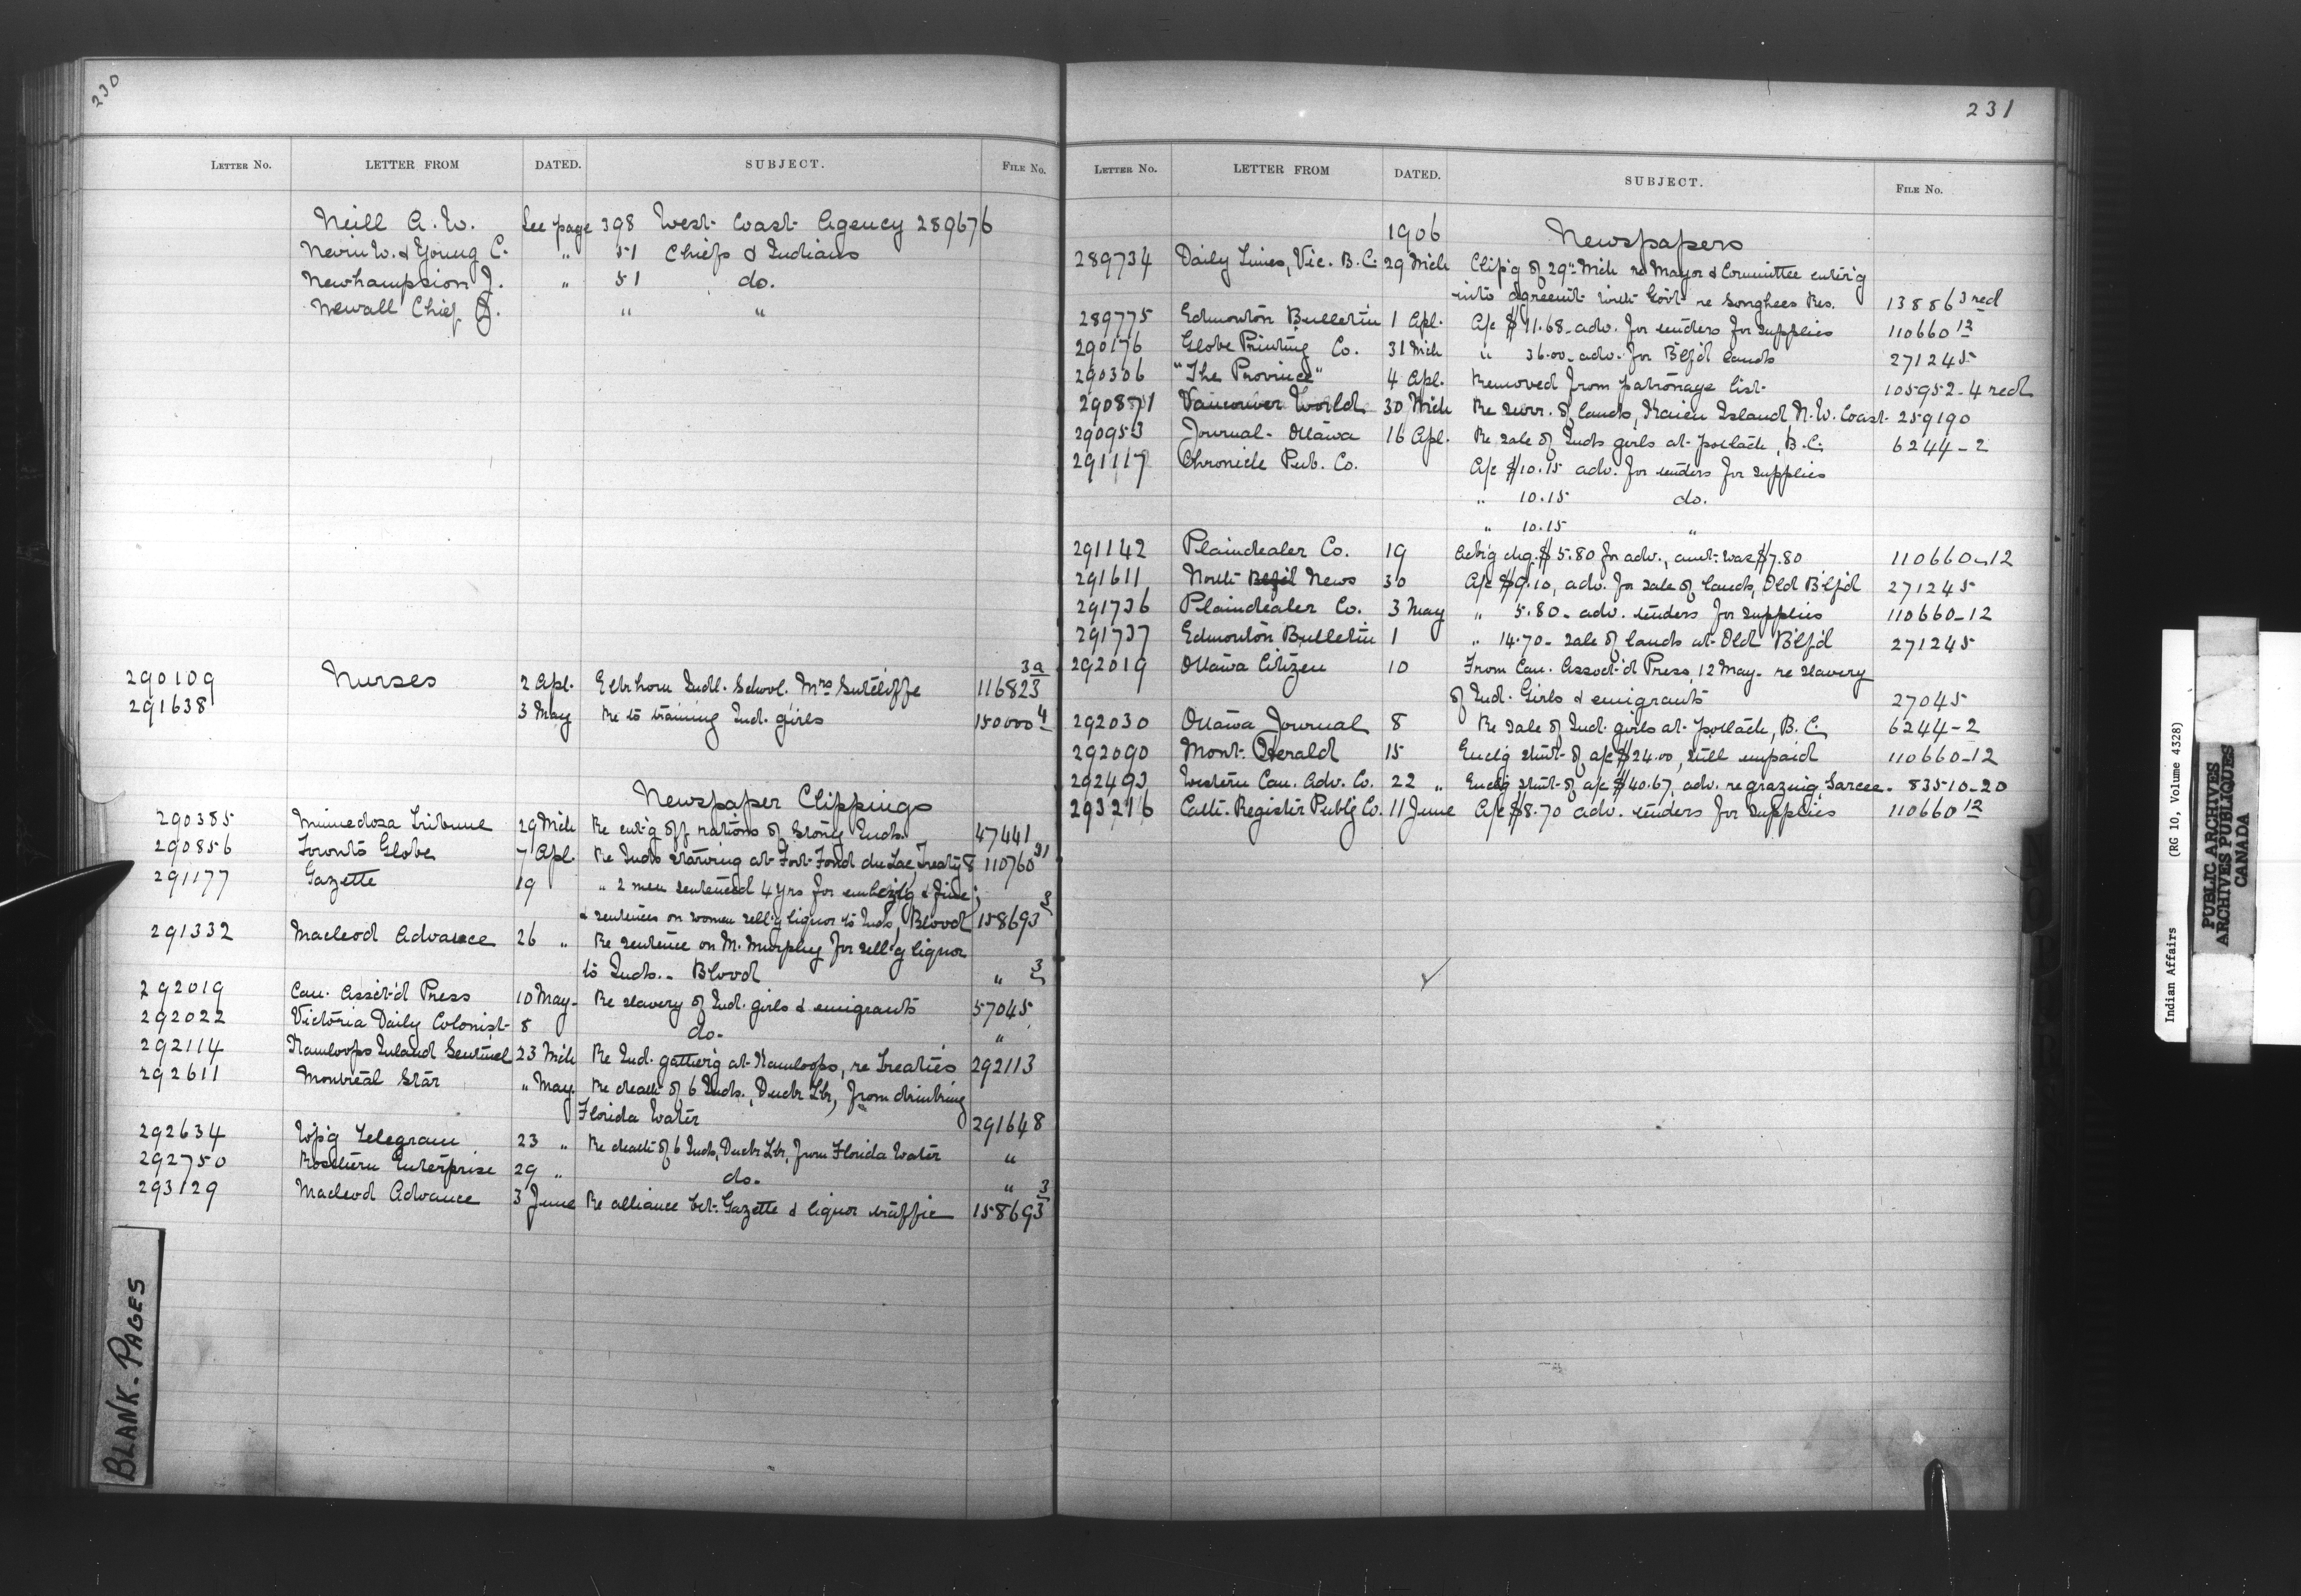 230
LETTER NO. LETTER FROM DATED. SUBJECT. FILE NO.
Neill A. W. See page 398 West Coast Agency 289676
Nevin W. & Young C. " 51 Chiefs & Indians
Newhampsion J. " 51 do.
Newall Chief J. " "
290109 Nurses 2 Apl. Elkhorn Indl. School. Mrs Sutcliffe 116823 3a
291638 3 May Re to training Ind. girls 150000 4
Newspaper Clippings
290385 Minnedosa Tribune 29 Mch Re cut'g off rations of Stony Inds. 47441
290856 Toronto Globe 7 Apl. Re Inds starving at Fort Fond du Lac, Treaty 8 110760 31
291177 Gazette 19 " 2 men sentenced 4 yrs for embezlg & fine;
& sentences on women sell'g liquor to Inds, Blood 158693 3
291332 Macleod Advance 26 " Re sentence on M. Murphy for sell'g liquor
to Inds. - Blood " 3
292019 Can. Assot'd Press 10 May - Re slavery of Ind. girls & emigrants 57045
292022 Victoria Daily Colonist 8 do. "
292114 Kamloops Inland Sentinel 23 Mch Re Ind. gather'g at Kamloops, re Treaties 292113
292611 Montreal Star " May Re death of 6 Inds., Duck Lk, from drinking
Florida Water 291648
292634 W'p'g Telegram 23 " Re death of 6 Inds, Duck Lk, from Florida Water "
292750 Rosthern Enterprise 29 " do. "
293129 Macleod Advance 3 June Re alliance bet. Gazette & liquor traffic 158693 3
BLANK-PAGES
231
LETTER NO. LETTER FROM DATED. SUBJECT. FILE NO.
1906 Newspapers
289734 Daily Times, Vic. B.C. 29 Mch Clip'g of 29" Mch re Mayor & Committee enter'g
into agreemt with Govt re Songhees Res. 13886 3 red
289775 Edmonton Bulletin 1 Apl. A/c $11.68 - adv. for tenders for supplies 110660 12
290176 Globe Printing Co. 31 Mch " 36.00 - adv. for B'lf'd lands 271245
290306 "The Province" 4 Apl. Removed from patronage list 105952-4 red
290871 Vancouver World 30 Mch Re surr. of lands, Kaien Island N.W. Coast 259190
290953 Journal - Ottawa 16 Apl. Re sale of Inds girls at potlach, B.C. 6244-2
291117 Chronicle Pub. Co. A/c $10.15 adv. for tenders for supplies
" 10.15 do.
" 10.15 "
291142 Plaindealer Co. 19 Ack'g chq. $5.80 for adv., amt was $7.80 110660-12
291611 North B'lf'd News 30 A/c $9.10, adv. for sale of lands, Old B'lf'd 271245
291736 Plaindealer Co. 3 May " 5.80 - adv. tenders for supplies 110660-12
291737 Edmonton Bulletin 1 " 14.70 - sale of lands at Old B'lf'd 271245
292019 Ottawa Citizen 10 From Can. Assoct'd Press, 12 May - re slavery
of Ind. Girls & emigrants 27045
292030 Ottawa Journal 8 Re sale of Ind. girls at potlach, B.C. 6244-2
292090 Mont. Herald 15 Enclg stmt of a/c $24.00, still unpaid 110660-12
292493 Western Can. Adv. Co. 22 " Enclg stmt of a/c $40.67, adv. re grazing, Sarcee - 83510-20
293216 Cath. Register Publg Co. 11 June A/c $8.70 adv. tenders for supplies 110660 12
Indian Affairs (RG 10, Volume 4328)
PUBLIC ARCHIVES
ARCHIVES PUBLIQUES
CANADA